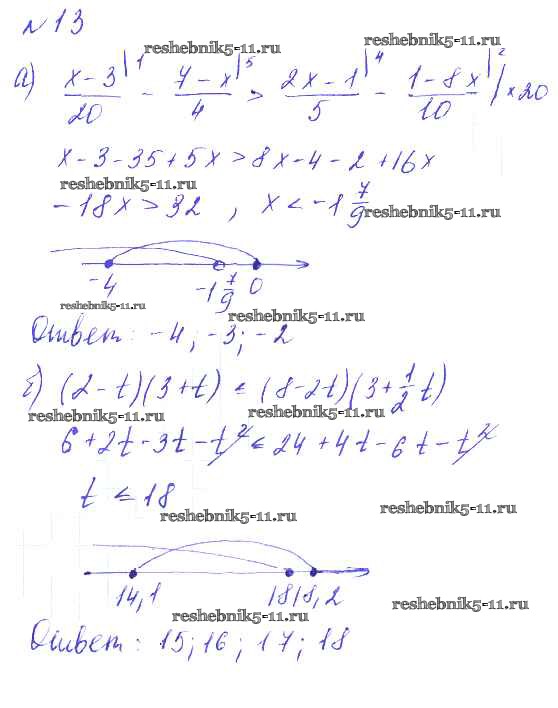 № 13
reshebnik5-11.ru
а) (x-3)/20 |1 - (7-x)/4 |5 > (2x-1)/5 |4 - (1-8x)/10 |2 | ×20
x-3-35+5x>8x-4-2+16x
reshebnik5-11.ru
-18x>32, x<-1 7/9
reshebnik5-11.ru
-4 -1 7/9 0
reshebnik5-11.ru
reshebnik5-11.ru
Ответ: -4; -3; -2
б) (2-t)(3+t) ≤ (8-2t)(3+1/2 t)
reshebnik5-11.ru reshebnik5-11.ru
6+2t-3t-t² ≤ 24+4t-6t-t²
t ≤ 18
reshebnik5-11.ru reshebnik5-11.ru
14,1 18 18,2
reshebnik5-11.ru reshebnik5-11.ru
Ответ: 15; 16; 17; 18